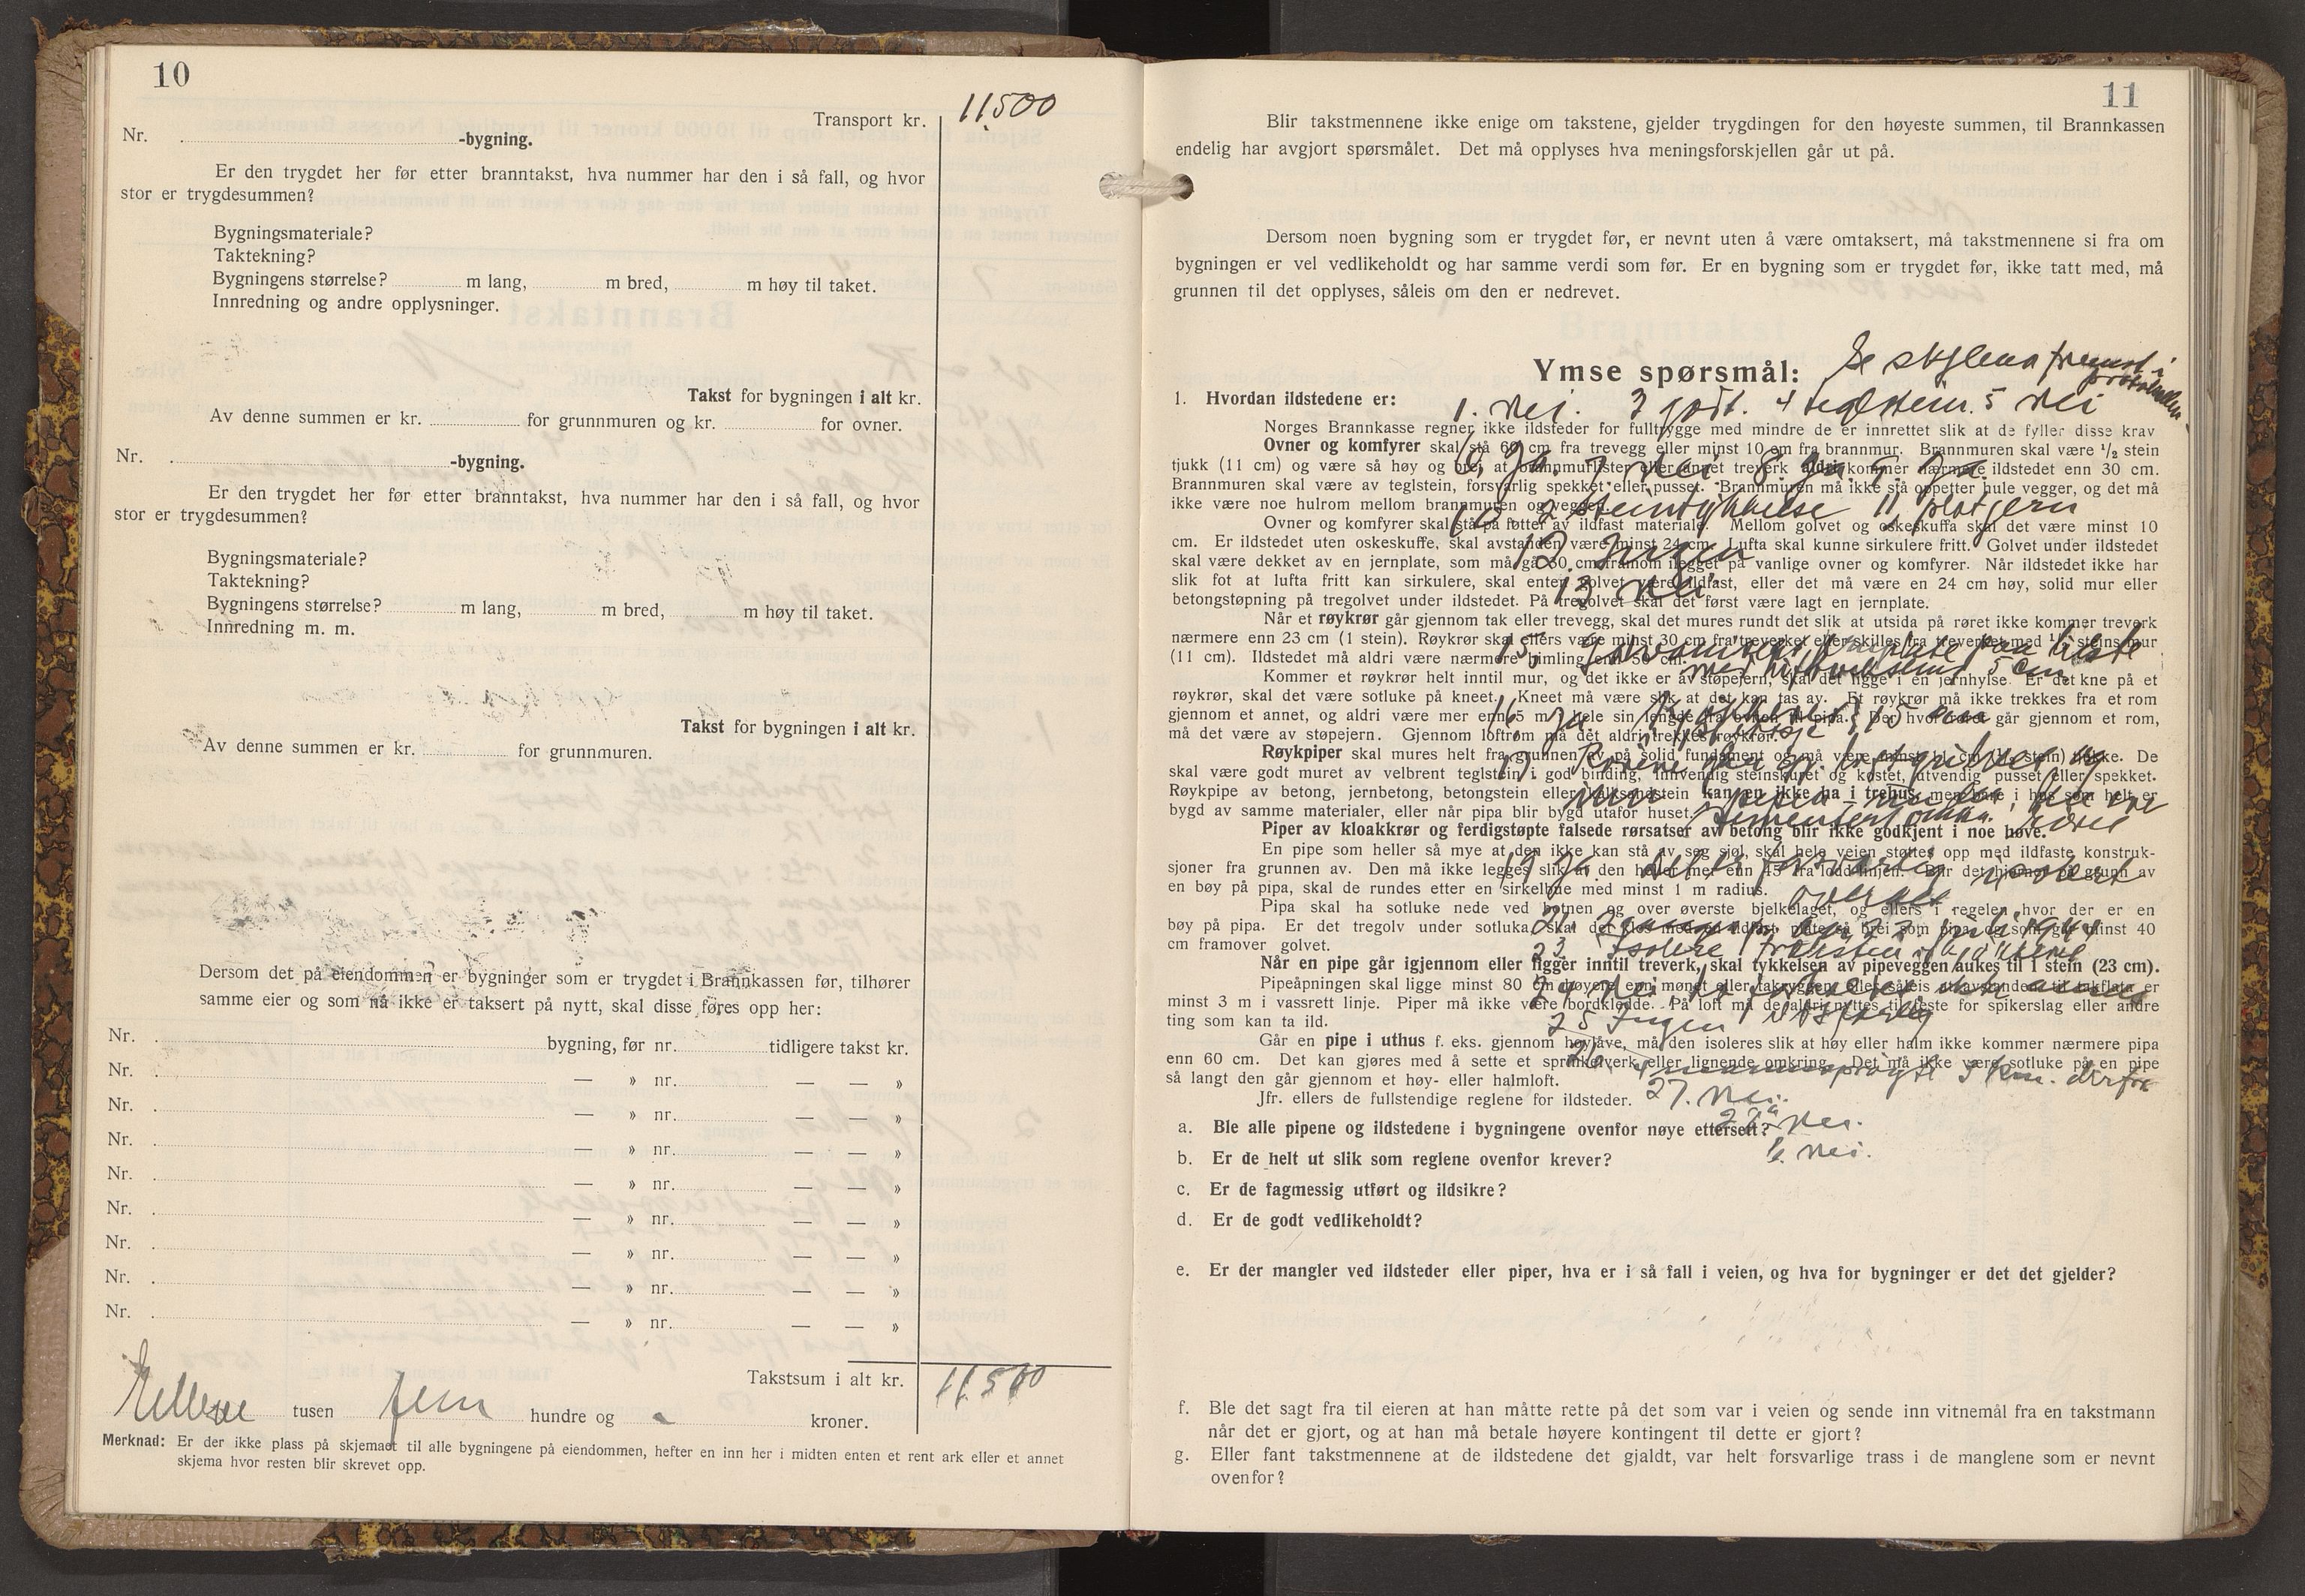 10
Transport kr. 11500
Nr. -bygning.
Er den trygdet her før etter branntakst, hva nummer har den i så fall, og hvor
stor er trygdesummen?
Bygningsmateriale?
Taktekning?
Bygningens størrelse? m lang, m bred, m høy til taket.
Innredning og andre opplysninger.
Takst for bygningen i alt kr.
Av denne summen er kr. for grunnmuren og kr. for ovner.
Nr. -bygning.
Er den trygdet her før etter branntakst, hva nummer har den i så fall, og hvor
stor er trygdesummen?
Bygningsmateriale?
Taktekning?
Bygningens størrelse? m lang, m bred, m høy til taket.
Innredning m. m.
Takst for bygningen i alt kr.
Av denne summen er kr. for grunnmuren.
Dersom det på eiendommen er bygninger som er trygdet i Brannkassen før, tilhører
samme eier og som nå ikke er taksert på nytt, skal disse føres opp her:
Nr. bygning, før nr. tidligere takst kr.
Nr. — » nr. — — »
Nr. — » nr. — — »
Nr. — » nr. — — »
Nr. — » nr. — — »
Nr. — » nr. — — »
Nr. — » nr. — — »
Nr. — » nr. — — »
Nr. — » nr. — — »
Takstsum i alt kr. 11500
Elleve tusen fem hundre og - kroner.
Merknad: Er der ikke plass på skjemaet til alle bygningene på eiendommen, hefter en inn her i midten enten et rent ark eller et annet
skjema hvor resten blir skrevet opp.
11
Blir takstmennene ikke enige om takstene, gjelder trygdingen for den høyeste summen, til Brannkassen
endelig har avgjort spørsmålet. Det må opplyses hva meningsforskjellen går ut på.
Dersom noen bygning som er trygdet før, er nevnt uten å være omtaksert, må takstmennene si fra om
bygningen er vel vedlikeholdt og har samme verdi som før. Er en bygning som er trygdet før, ikke tatt med, må
grunnen til det opplyses, såleis om den er nedrevet.
Ymse spørsmål: Se skjema fremst i
protokollen
1. Hvordan ildstedene er: 1. Nei. 3 godt. 4 teglstein. 5 nei
Norges Brannkasse regner ikke ildsteder for fulltrygge med mindre de er innrettet slik at de fyller disse krav
Ovner og komfyrer skal stå 60 cm fra trevegg eller minst 10 cm fra brannmur. Brannmuren skal være 1/2 stein
6 Ja. 7 Nei 8. Ja. 9. Ja.
tjukk (11 cm) og være så høy og brei at brannmurlister eller annet treverk aldri kommer nærmere ildstedet enn 30 cm.
Brannmuren skal være av teglstein, forsvarlig spekket eller pusset. Brannmuren må ikke stå oppetter hule vegger, og det må
ikke være noe hulrom mellom brannmuren og veggen.
10 2 steintykkelse 11 platjern
Ovner og komfyrer skal stå på føtter av ildfast materiale. Mellom golvet og oskeskuffa skal det være minst 10
cm. Er ildstedet uten oskeskuffe, skal avstanden være minst 24 cm. Lufta skal kunne sirkulere fritt. Golvet under ildstedet
12. Ingen
skal være dekket av en jernplate, som må gå 30 cm framom ilegget på vanlige ovner og komfyrer. Når ildstedet ikke har
slik fot at lufta fritt kan sirkulere, skal enten golvet være ildfast, eller det må være en 24 cm høy, solid mur eller
13 nei
betongstøpning på tregolvet under ildstedet. På tregolvet skal det først være lagt en jernplate.
Når et røykrør går gjennom tak eller trevegg, skal det mures rundt det slik at utsida på røret ikke kommer treverk
nærmere enn 23 cm (1 stein). Røykrør skal ellers være minst 30 cm fra treverket eller skilles fra treverket med 1/2 steins mur
(11 cm). Ildstedet må aldri være nærmere himling enn 50 cm.
Kommer et røykrør helt inntil mur, og det ikke er av støpejern, skal det ligge i en jernhylse. Er det kne på et
røykrør, skal det være sotluke på kneet. Kneet må være slik at det kan tas av. Et røykrør må ikke trekkes fra et rom
gjennom et annet, og aldri være mer enn 5 m i hele sin lengde fra ovnen til pipa. Der hvor røret går gjennom et rom,
må det være av støpejern. Gjennom loftrom må det aldri trekkes røykrør.
Røykpiper skal mures helt fra grunnen av på solid fundament og må være minst 11 cm (1/2 stein) tykke. De
skal være godt muret av velbrent teglstein i god binding, innvendig steinskuret og kostet, utvendig pusset eller spekket.
Røykpipe av betong, jernbetong, betongstein eller kalksandstein kan en ikke ha i trehus, men bare i hus som helt er
bygd av samme materialer, eller når pipa blir bygd utafor huset.
Piper av kloakkrør og ferdigstøpte falsede rørsatser av betong blir ikke godkjent i noe høve.
En pipe som heller så mye at den ikke kan stå av seg sjøl, skal hele veien støttes opp med ildfaste konstruk-
sjoner fra grunnen av. Den må ikke legges slik at den heller mer enn 45° fra loddlinjen. Blir det hjørner på grunn av
en bøy på pipa, skal de rundes etter en sirkelbue med minst 1 m radius.
Pipa skal ha sotluke nede ved botnen og over øverste bjelkelaget, og ellers i regelen hvor der er en
bøy på pipa. Er det tregolv under sotluka, skal det kles med en ildfast plate så brei som pipa, og som går minst 40
cm framover golvet.
Når en pipe går igjennom eller ligger inntil treverk, skal tykkelsen av pipeveggen aukes til 1 stein (23 cm).
Pipeåpningen skal ligge minst 80 cm høyere enn mønet eller takryggen, eller såleis at avstanden til takflata er
minst 3 m i vassrett linje. Piper må ikke være bordkledde. På loft må de aldri nyttes til feste for spikerslag eller andre
ting som kan ta ild.
25 Ingen
Går en pipe i uthus f. eks. gjennom høylåve, må den isoleres slik at høy eller halm ikke kommer nærmere pipa
enn 60 cm. Det kan gjøres med å sette et sprinkelverk eller lignende omkring. Det må ikke være sotluke på en pipe
så langt den går gjennom et høy- eller halmloft.
Jfr. ellers de fullstendige reglene for ildsteder. 27. Nei.
a. Ble alle pipene og ildstedene i bygningene ovenfor nøye ettersett? nei.
b. Er de helt ut slik som reglene ovenfor krever? b. nei.
c. Er de fagmessig utført og ildsikre?
d. Er de godt vedlikeholdt?
e. Er der mangler ved ildsteder eller piper, hva er i så fall i veien, og hva for bygninger er det det gjelder?
f. Ble det sagt fra til eieren at han måtte rette på det som var i veien og sende inn vitnemål fra en takstmann
når det er gjort, og at han må betale høyere kontingent til dette er gjort?
g. Eller fant takstmennene at de ildstedene det gjaldt, var helt forsvarlige trass i de manglene som er nevnt
ovenfor?